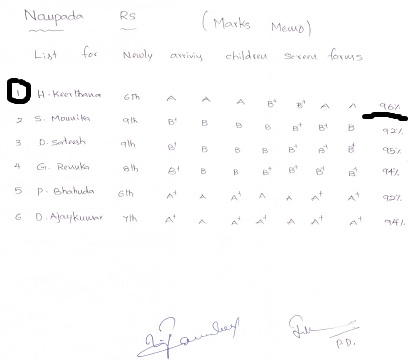 Naupada RS (Marks Memo)
List for Newly arriving children screen forms
1 H. Keerthana 6th A A A B+ B+ A A 96%
2 S. Mounika 9th B+ B B B+ B+ B+ B 92%
3 D. Sateesh 9th B+ B B B B+ B+ B+ 95%
4 G. Renuka 8th B+ B B B+ B+ B+ B+ 94%
5 P. Bhahuda 6th A+ A A+ A A A+ A+ 92%
6 D. Ajaykumar 7th A+ A A+ A+ A A+ A+ 94%
P.D.